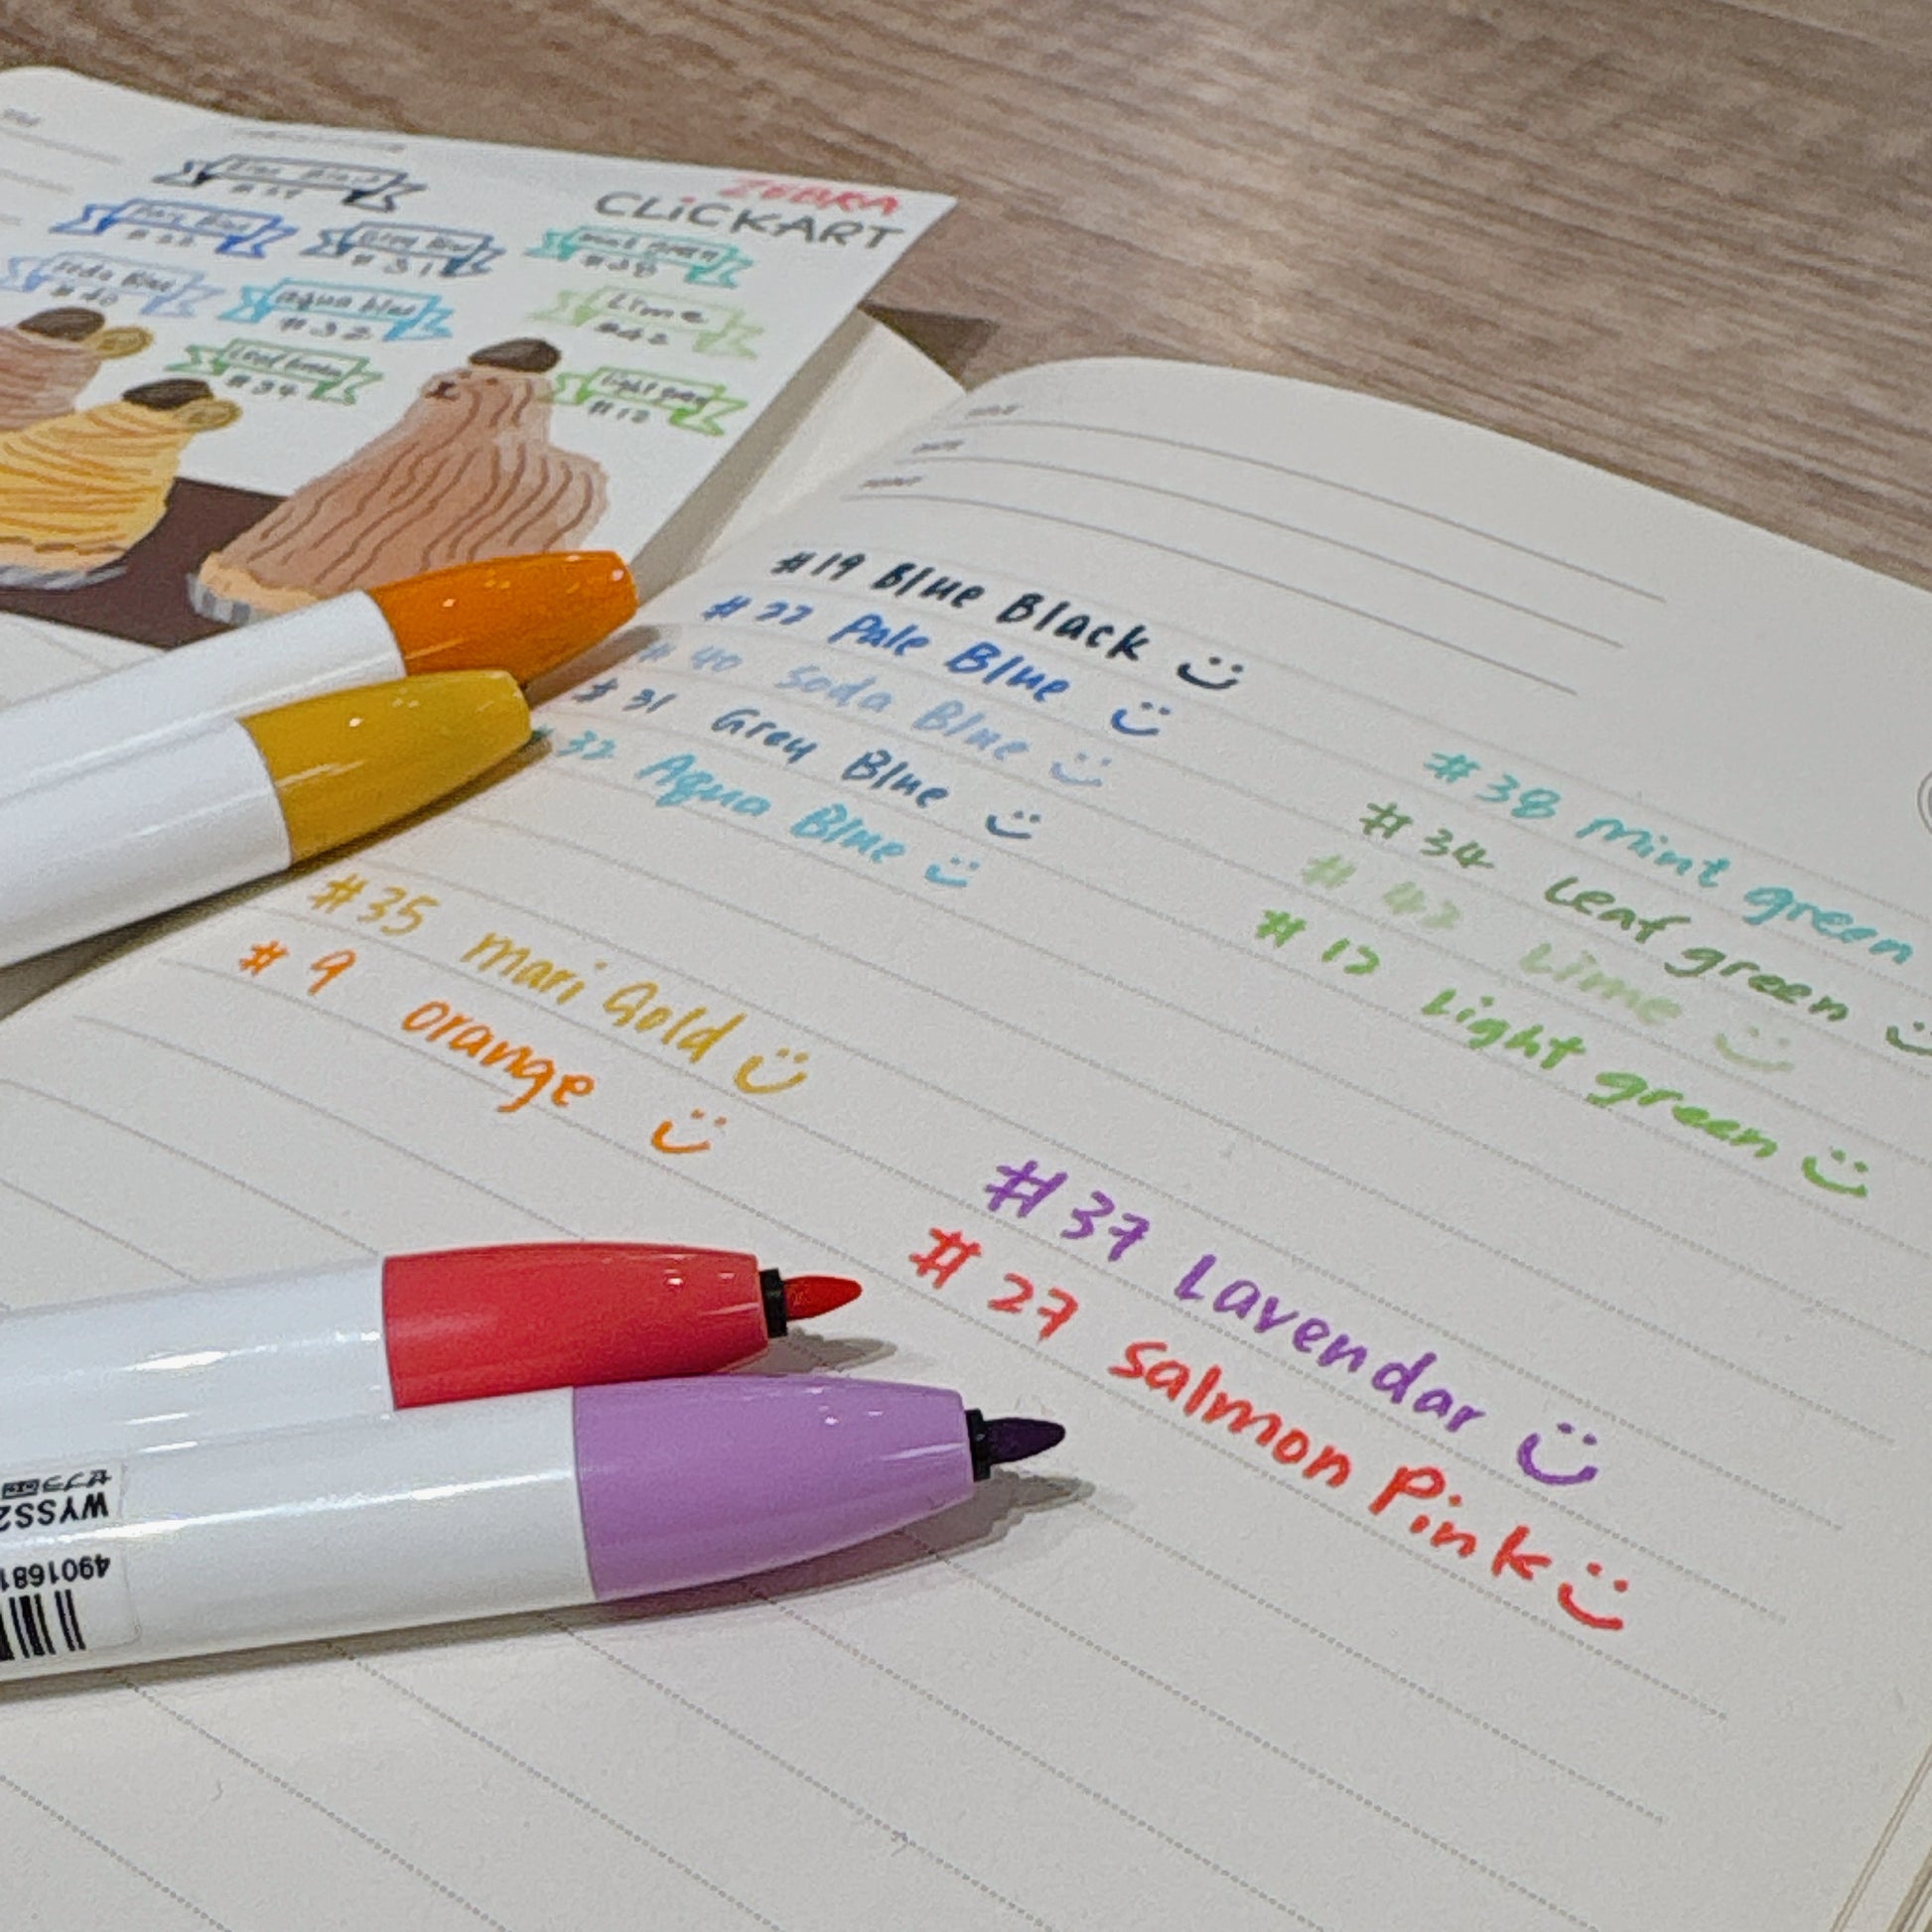 ZEBRA
CLiCKART
#31
mint green
#38
Soda Blue
#40
aqua blue
#32
Lime
#42
Leaf Green
#34
light green
#12
#19 Blue Black
#22 Pale Blue
#40 Soda Blue
#31 Grey Blue
#32 Aqua Blue
#38 mint green
#34 Leaf green
#42 Lime
#12 Light green
#35 mari Gold
#9 orange
#37 Lavendar
#27 Salmon Pink
ゼブラ
WYSS2
4901681